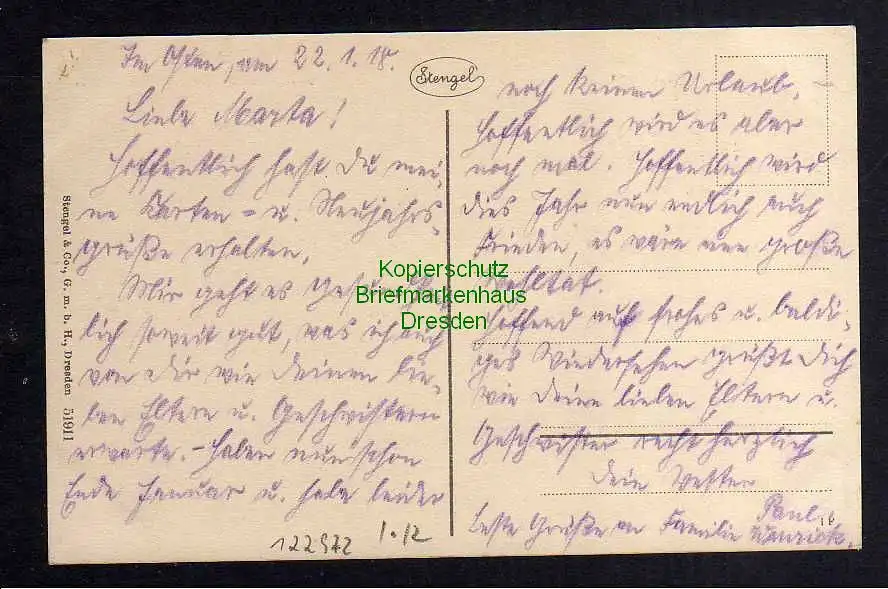 Im Osten, am 22.1.18.
Liebe Marta!
Hoffentlich hast Du mei-
ne Karten - u. Neujahrs-
grüße erhalten.
Mir geht es gesundheit-
lich soweit gut, was ich auch
von Dir wie Deinen lie-
ben Eltern u. Geschwistern
erwarte. - Haben nun schon
Ende Januar u. habe leider
122972 1.12
Stengel & Co., G. m. b. H., Dresden 51911
Stengel
noch keinen Urlaub,
hoffentlich wird es aber
noch mal. Hoffentlich wird
dies Jahr nun endlich auch
Frieden, es wäre eine große
Wohltat.
Hoffend auf frohes u. baldi-
ges Wiedersehen grüßt Dich
wie Deine lieben Eltern u.
Geschwister recht herzlich
Dein Vetter
Paul
Beste Grüße an Familie
Kopierschutz
Briefmarkenhaus
Dresden